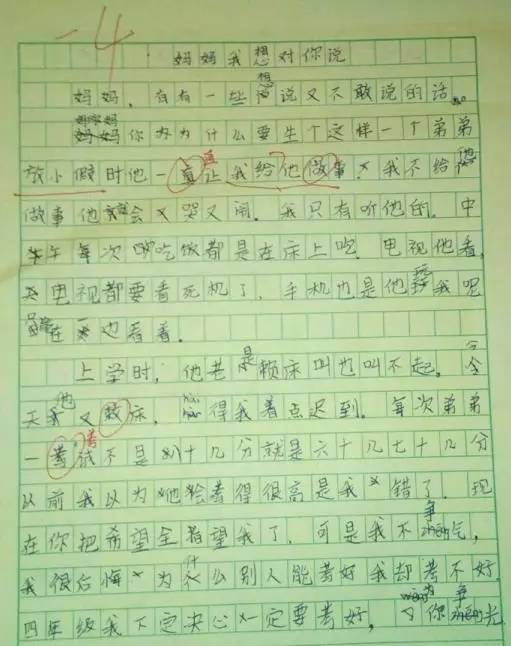 -4
妈妈我想对你说
妈妈,有有一些想说又不敢说的话。
你为什么要生个这样一个弟弟
放小假时他一真直让我给他做事,我不给他
做事他就会又哭又闹。我只有听他的。中
午每次吃饭都是在床上吃,电视他看,
电视都要看死机了,手机也是他玩我呢
在也看着。
上学时,他老是赖床叫也叫不起。今
天他又放床,得我差点迟到。每次弟弟
一考试不是八十几分就是六十几七十几分
以前我以为他会考得很高是我错了。现
在你把希望全指望我了,可是我不争气,
我很后悔为什么别人能考好我却考不好
四年级我下定决心一定要考好,为你争光